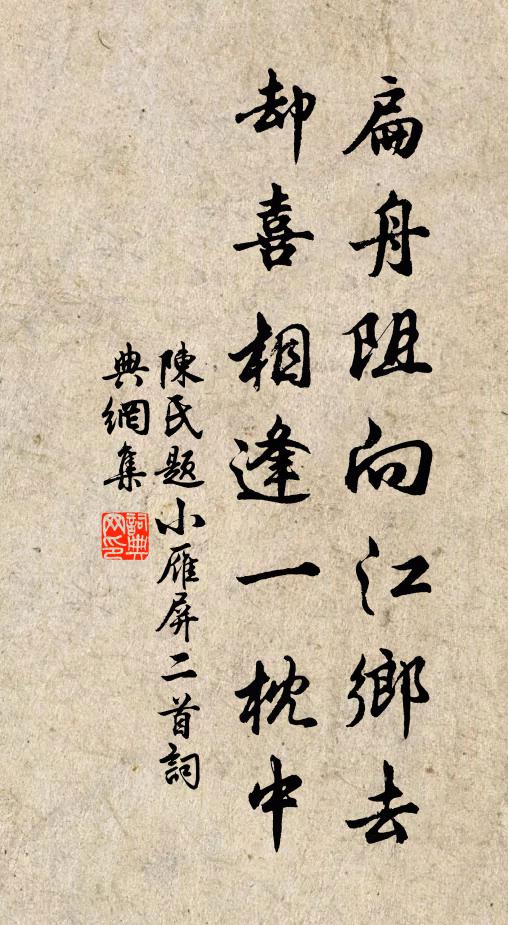 扁舟阻向江鄉去
却喜相逢一枕中
陳氏题小雁屏二首詞
典網集
詞典
网印